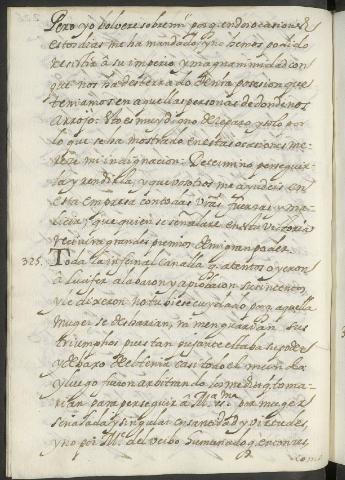 Pero yo bolvere sobre mi porq. en dos ocasiones
estos dias me ha mandado, y no hemos podido
resistir â su imperio, y magnanimidad con
que nos ha desterrado de la posesion que
teniamos en aquellas personas de donde nos
arrojo: Esto es muy digno de reparo, y solo por
lo que se ha mostrado en estas ocasiones me-
rece mi indignacion: Determino perseguir-
la, y rendilla, y que vosotros me ayudeis en
esta empresa con todas vras. fuerzas, y ma-
licia; que quien se señalare en esta victoria
recivira grandes premios de mi gran poder.
325. Toda la infernal canalla q. atentos oyeron
â Lucifer alabaron, y aprobaron su intencion,
y le dixeron no tubiese cuydado porq. aquella
muger se desharian, ni menguarian sus
triumphos pues tan pujante estaba su poder
y debaxo de el tenia casi todo el mundo:
y luego fueron arbitrando los medios q. toma-
rian para perseguir â Maria sma. por muger
señalada, y singular en santidad, y virtudes,
y no por Me. del verbo humanado q. entonces
como